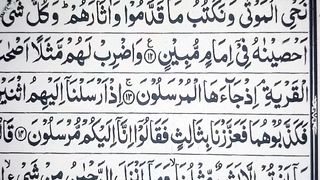 نُحْيِ الْمَوْتٰى وَنَكْتُبُ مَا قَدَّمُوْا وَاٰثَارَهُمْ ؕ وَكُلَّ شَیْ
اَحْصَيْنٰهُ فِىْۤ اِمَامٍ مُّبِيْنٍ ۝۱۲ وَاضْرِبْ لَهُمْ مَّثَلًا اَصْحٰ
الْقَرْيَةِ ۘ اِذْ جَآءَهَا الْمُرْسَلُوْنَ ۝۱۳ اِذْ اَرْسَلْنَاۤ اِلَيْهِمُ اثْنَيْنِ
فَكَذَّبُوْهُمَا فَعَزَّزْنَا بِثَالِثٍ فَقَالُوْۤا اِنَّاۤ اِلَيْكُمْ مُّرْسَلُوْنَ ۝۱۴ قَالُ